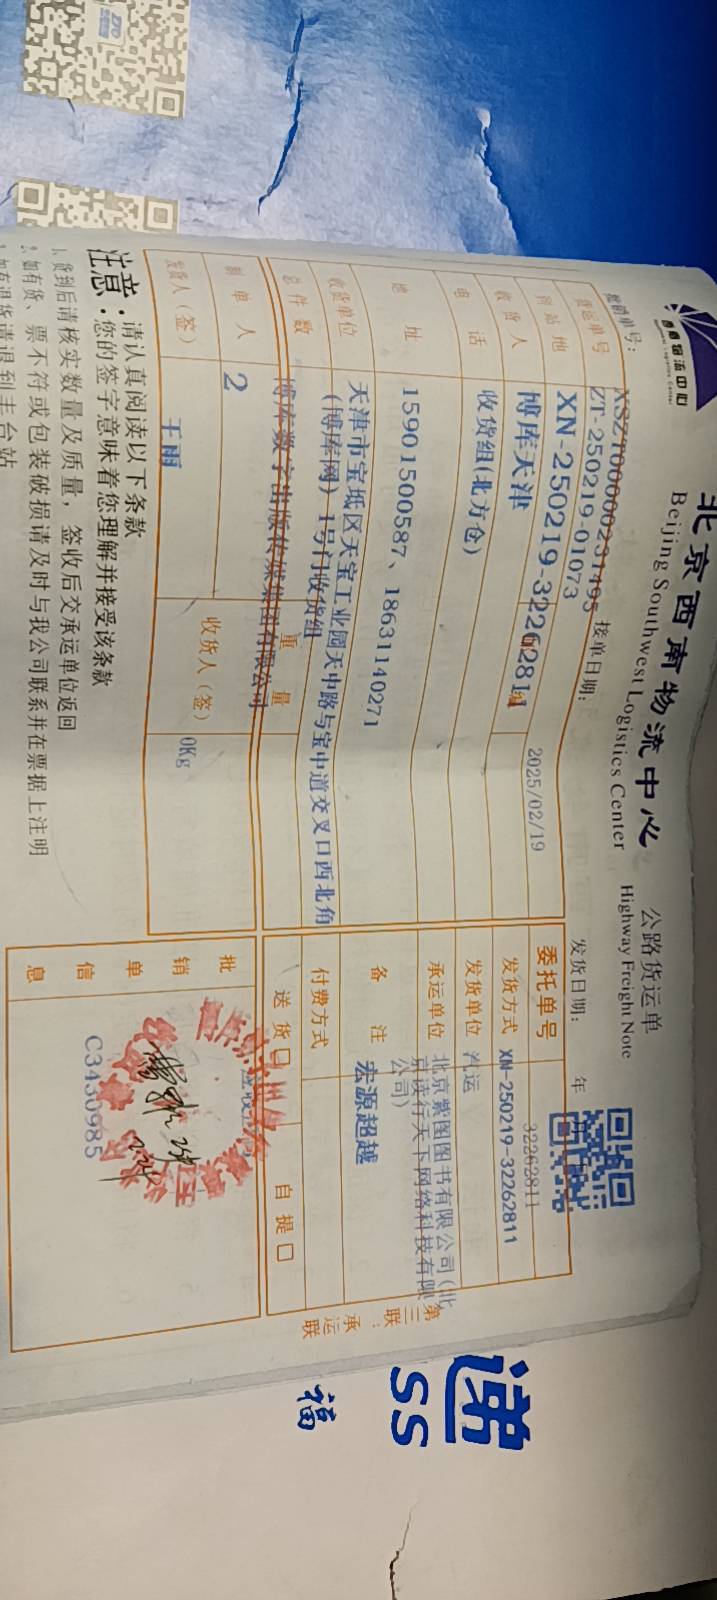 西南物流中心
北京西南物流中心
Beijing Southwest Logistics Center
公路货运单
Highway Freight Note
XSZT0000002314
接单日期：
2025/02/19
发货日期： 年 月
货运单号
ZT-250219-01073
到站地
XN-250219-32262811
收货人
博库天津
电 话
收货组(北方仓)
地 址
15901500587、18631140271
收货单位
天津市宝坻区天宝工业园天中路与宝中道交叉口西北角
(博库网) 1号门收货组
总件数
博库数字出版传媒集团有限公司
重 量
制单人
2
收货人(签)
0Kg
发货人(签)
王雨
委托单号
32262811
发货方式
XN-250219-32262811
发货单位
汽运
承运单位
北京紫图图书有限公司(北
京读行天下网络科技有限
公司)
备 注
宏源超越
付费方式
送货□
自提□
批销单信息
C3430985
第三联：承运联
注意：
请认真阅读以下条款
您的签字意味着您理解并接受该条款
1. 货到后请核实数量及质量，签收后交承运单位返回
2. 如有货、票不符或包装破损请及时与我公司联系并在票据上注明
如有退货请退到丰台站
递
SS
福